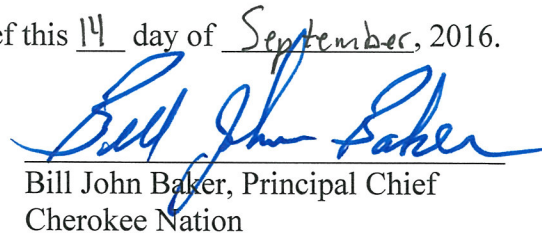 ef this 14 day of September, 2016.
Bill John Baker
Bill John Baker, Principal Chief
Cherokee Nation